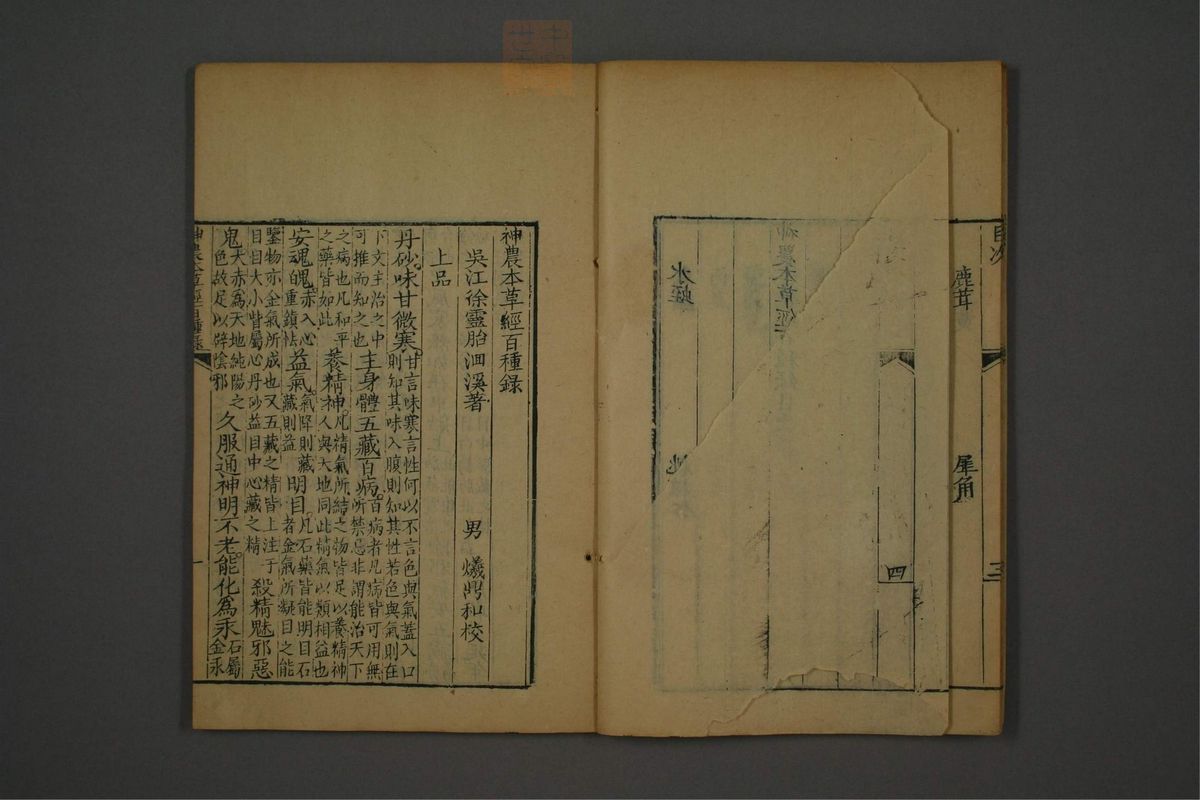 目次
鹿茸
犀角
三
四
水蛭
神農本草經
神農本草經百種錄
吳江徐靈胎洄溪著
男 爔鼎和校
上品
丹砂味甘微寒甘言味寒言性何以不言色與氣蓋入口
則知其味入腹則知其性若色與氣則在
下文主治之中可推而知之也主身體五藏百病百病者凡病皆可用無
所禁忌非謂能治天下
之病也凡和平之藥皆如此養精神凡精氣所結之物皆足以養精神
人與天地同此精氣以類相益也
安魂魄赤入心白重鎮怯益氣氣降則藏藏則益明目凡石藥皆能明目石
者金氣所凝目之能
鑒物亦金氣所成也又五藏之精皆上注于
目目大小眥屬心丹砂益目中心藏之精殺精魅邪惡
鬼大赤為天地純陽之色故足以辟陰邪久服通神明不老能化為汞石屬
金汞
一